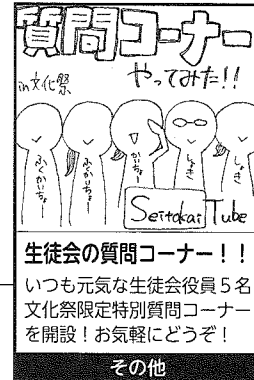 質問コーナー
in文化祭
やってみた!!
ふくかいちょー
ふくかいちょー
かいちょー
しょき
しょき
Seitokai Tube
生徒会の質問コーナー！！
いつも元気な生徒会役員５名
文化祭限定特別質問コーナー
を開設！お気軽にどうぞ！
その他